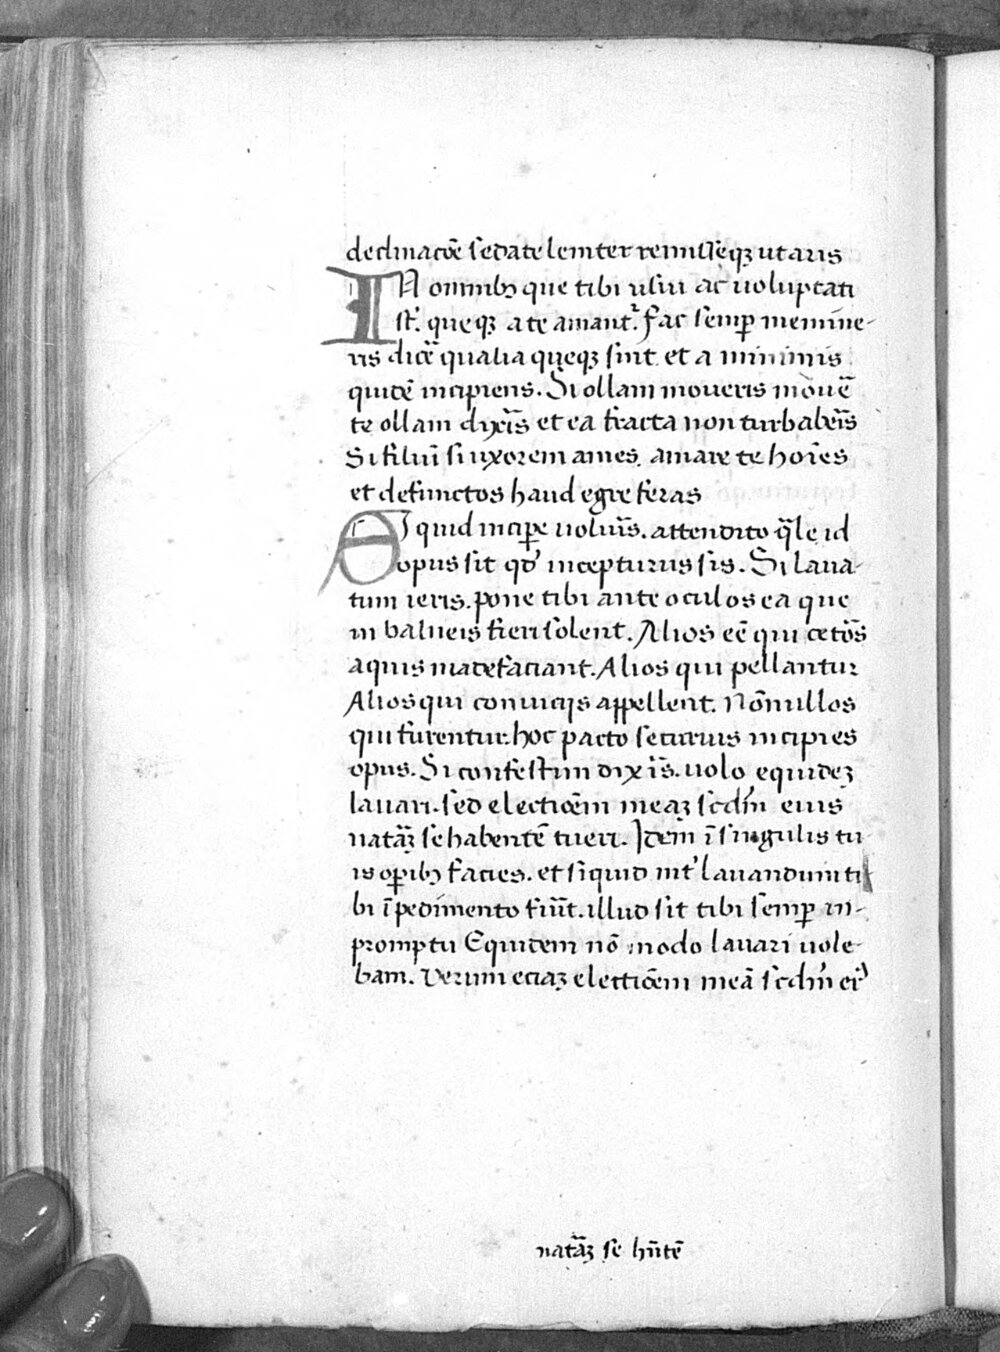 declinacõe sedate leniter remisseqꝫ utaris
IN omnibꝫ que tibi usui ac uoluptati
st̃. queqꝫ a te amant᷑. fac semꝑ memine-
ris dicẽ qualia queqꝫ sint et a minimis
quidẽ incipiens. Si ollam moueris mouẽ
te ollam dixĩs et ea fracta non turbabeĩs
Si filiũ si uxorem ames. amare te hoĩes
et defunctos haud egre feras
Aliquid inciꝑe uoluĩs. attendito q̃le id
opus sit qd' incepturus sis. Si laua-
tum ieris. pone tibi ante oculos ea que
in balneis fieri solent. Alios eẽ qui cetõs
aquis madefaciant. Alios qui pellantur
Alios qui conuicijs appellent. Nõnullos
qui furentur. hoc pacto securius incipies
opus. Si confestim dixĩs. uolo equideꝫ
lauari. sed electiõem meaꝫ scdm̃ eius
natãꝫ se habentẽ tueri. Idem ĩ singulis tu
is oꝑibꝫ facies. et siquid int' lauandum ti
bi ĩpedimento fiũt. illud sit tibi semꝑ in-
promptu Equidem nõ modo lauari uole-
bam. Verum eciaꝫ electiõem meã scdm̃ ei'
natãꝫ se hñtẽ